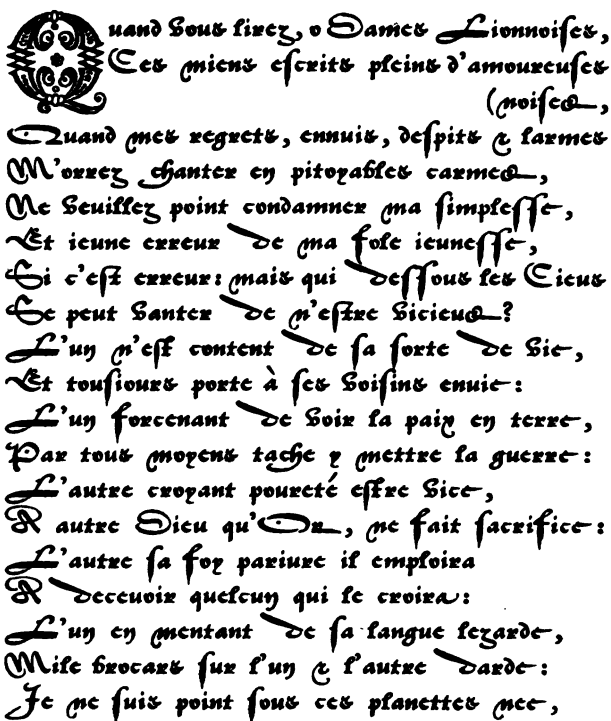 Quand vous lirez, o Dames Lionnoises,
Ces miens escrits pleins d'amoureuses
(noises,
Quand mes regrets, ennuis, despits & larmes
M'orrez chanter en pitoyables carmes,
Ne veuillez point condamner ma simplesse,
Et ieune erreur de ma fole ieunesse,
Si c'est erreur: mais qui dessous les Cieus
Se peut vanter de n'estre vicieus?
L'un n'est content de sa sorte de vie,
Et tousiours porte à ses voisins enuie:
L'un forcenant de voir la paix en terre,
Par tous moyens tache y mettre la guerre:
L'autre croyant poureté estre vice,
A autre Dieu qu'Or, ne fait sacrifice:
L'autre sa foy pariure il emploira
A deceuoir quelcun qui le croira:
L'un en mentant de sa langue lezarde,
Mile brocars sur l'un & l'autre darde:
Je ne suis point sous ces planettes nee,